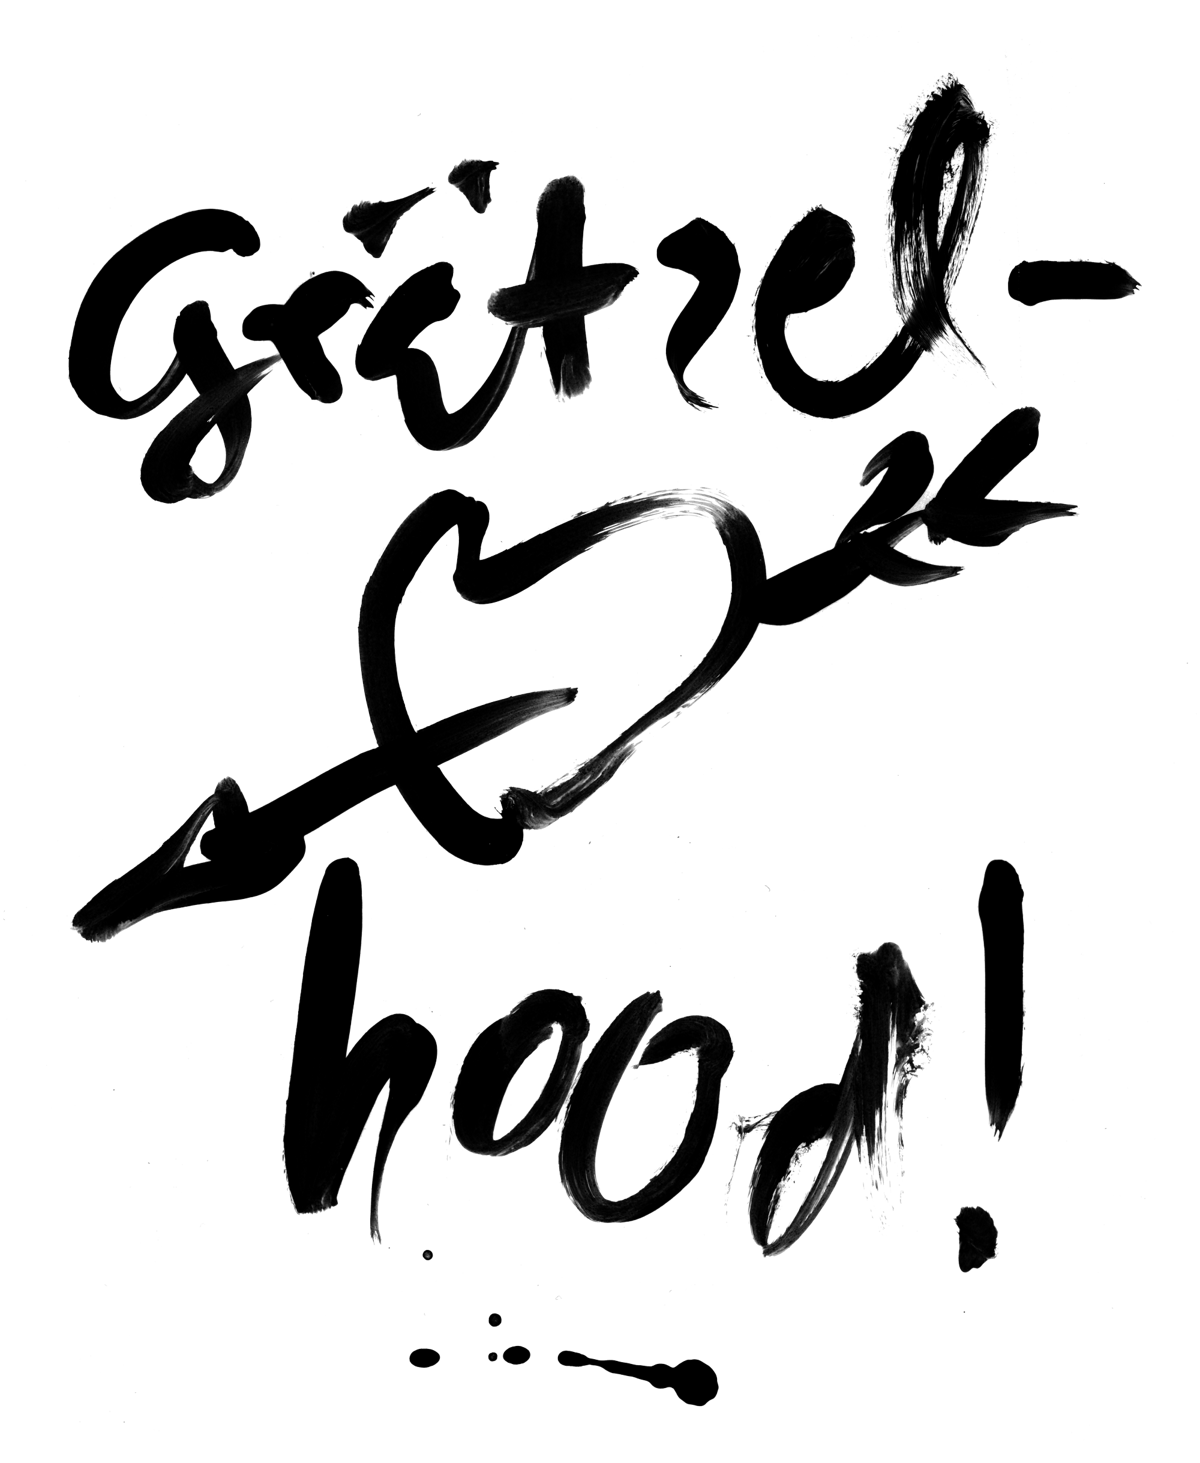 Grätzel-
hood!